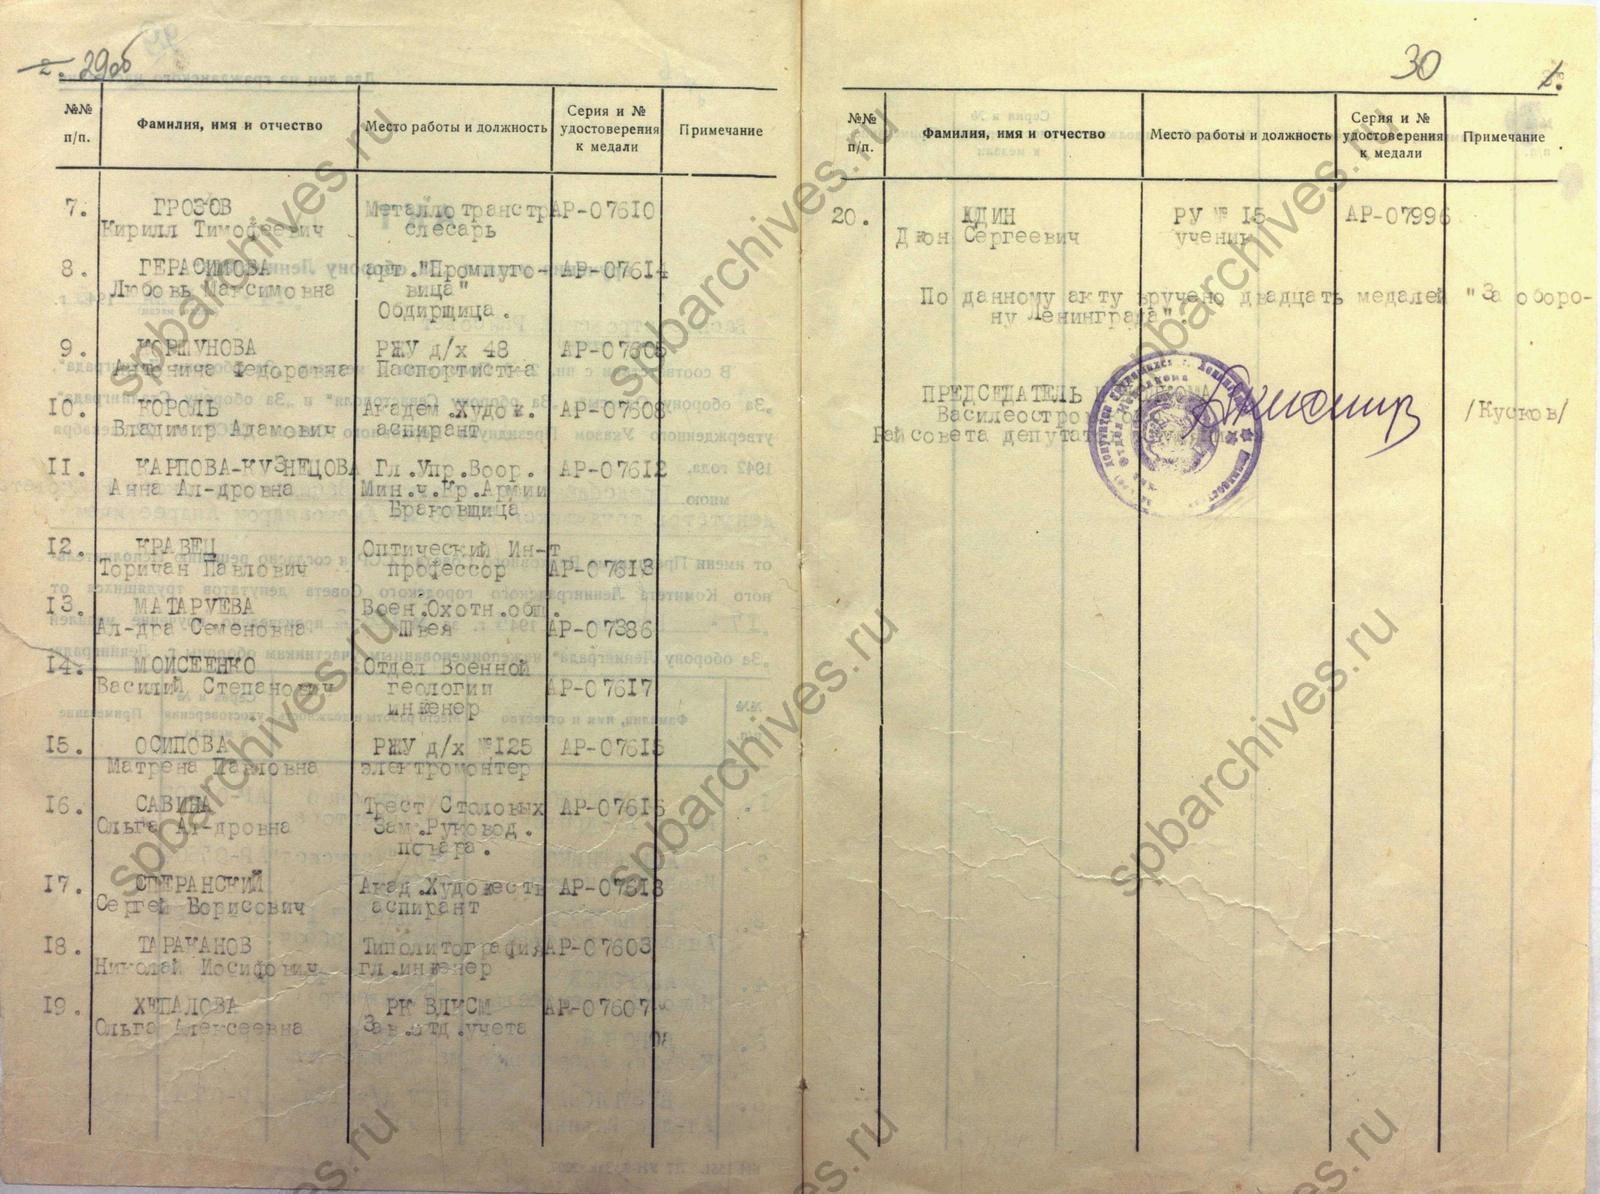 29об
№№ п/п.
Фамилия, имя и отчество
Место работы и должность
Серия и № удостоверения к медали
Примечание
7. ГРОЗОВ Металлотранстр АР-07610
Кирилл Тимофеевич слесарь
8. ГЕРАСИМОВА арт."Промпуго- АР-07614
Любовь Максимовна вица"
Обдирщица.
9. КОРШУНОВА РЖУ д/х 48 АР-07605
Антонина Федоровна Паспортистка
10. КОРОЛЬ Академ.Худож. АР-07608
Владимир Адамович аспирант
11. КАРПОВА-КУЗНЕЦОВА Гл.Упр.Воор. АР-07612
Анна Ал-дровна Мин.ч.Кр.Армии
Браковщица
12. КРАВЕЦ Оптический Ин-т
Торичан Павлович профессор АР-07613
13. МАТАРУЕВА Воен.Охотн.общ.
Ал-дра Семеновна Швея АР-07386
14. МОИСЕЕНКО Отдел Военной
Василий Степанович геологии АР-07617
инженер
15. ОСИПОВА РЖУ д/х №125 АР-07615
Матрена Павловна электромонтер
16. САВИНА Трест Столовых АР-07616
Ольга Ал-дровна Зам.Руковод.
повара.
17. СПЕРАНСКИЙ Акад.Художеств АР-07618
Сергей Борисович аспирант
18. ТАРАКАНОВ Типолитография АР-07603
Николай Иосифович гл.инженер
19. ХЕПАЛОВА РК ВЛКСМ АР-07607
Ольга Алексеевна Зав.отд.учета
30
№№ п/п.
Фамилия, имя и отчество
Место работы и должность
Серия и № удостоверения к медали
Примечание
20. ЮДИН РУ № 15 АР-07996
Джон Сергеевич ученик
По данному акту вручено двадцать медалей "За оборо-
ну Ленинграда".
ПРЕДСЕДАТЕЛЬ
Василеостров
Райсовета депутатов
/Кусков/
spbarchives.ru
spbarchives.ru
spbarchives.ru
spbarchives.ru
spbarchives.ru
spbarchives.ru